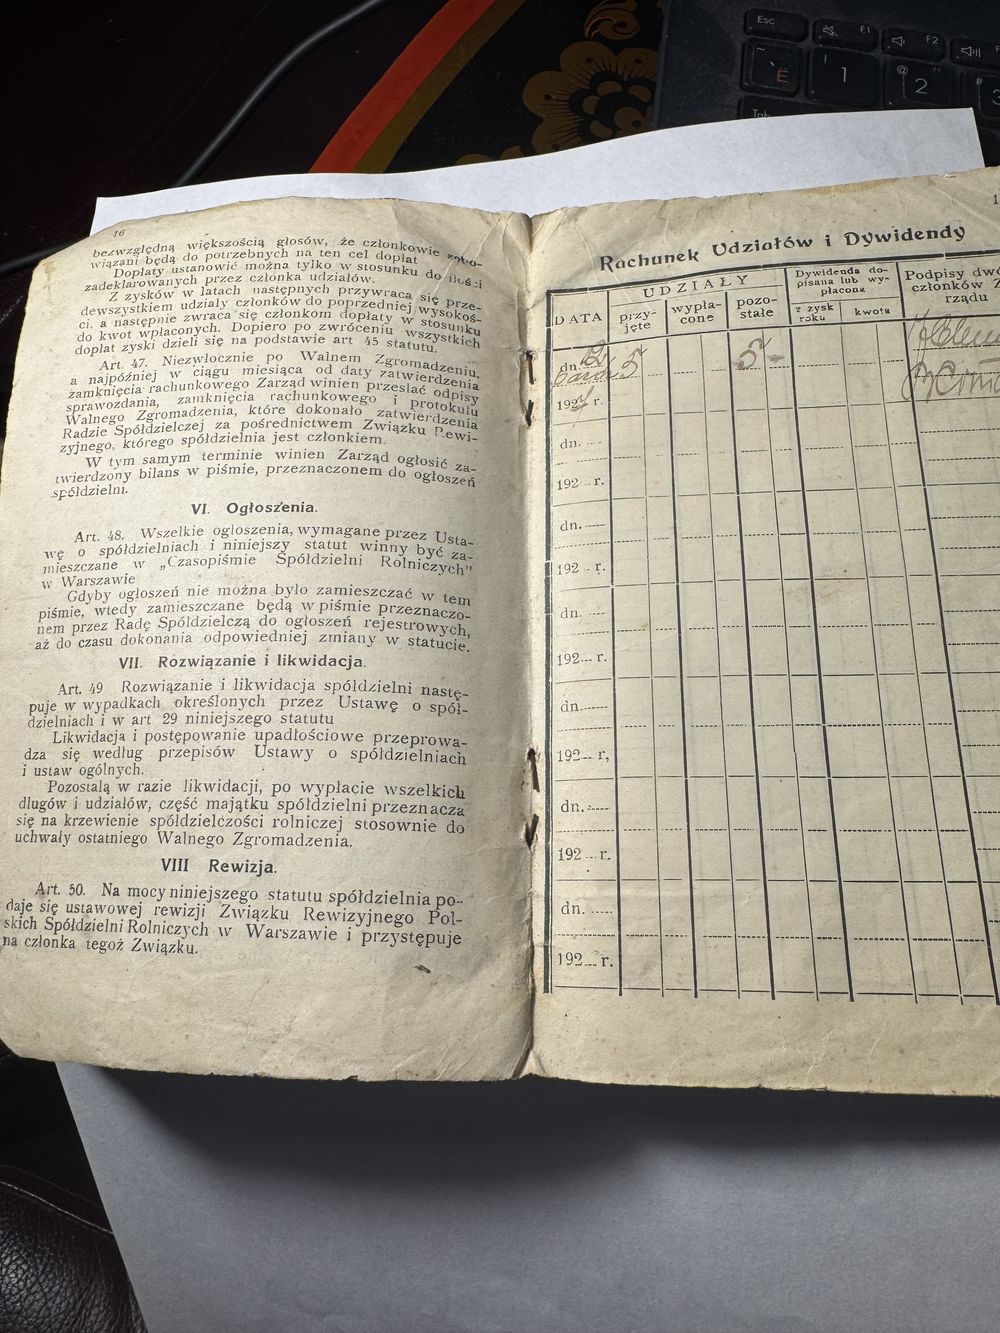 16
bezwzględną większością głosów, że członkowie zobo-
wiązani będą do potrzebnych na ten cel dopłat
Dopłaty ustanowić można tylko w stosunku do ilości
zadeklarowanych przez członka udziałów.
Z zysków w latach następnych przywraca się prze-
dewszystkiem udziały członków do poprzedniej wysokoś-
ci, a następnie zwraca się członkom dopłaty w stosunku
do kwot wpłaconych. Dopiero po zwróceniu wszystkich
dopłat zyski dzieli się na podstawie art 45 statutu.
Art. 47. Niezwłocznie po Walnem Zgromadzeniu,
a najpóźniej w ciągu miesiąca od daty zatwierdzenia
zamknięcia rachunkowego Zarząd winien przesłać odpisy
sprawozdania, zamknięcia rachunkowego i protokułu
Walnego Zgromadzenia, które dokonało zatwierdzenia
Radzie Spółdzielczej za pośrednictwem Związku Rewi-
zyjnego, którego spółdzielnia jest członkiem.
W tym samym terminie winien Zarząd ogłosić za-
twierdzony bilans w piśmie, przeznaczonem do ogłoszeń
spółdzielni.
VI. Ogłoszenia.
Art. 48. Wszelkie ogłoszenia, wymagane przez Usta-
wę o spółdzielniach i niniejszy statut winny być za-
mieszczane w „Czasopiśmie Spółdzielni Rolniczych"
w Warszawie
Gdyby ogłoszeń nie można było zamieszczać w tem
piśmie, wtedy zamieszczane będą w piśmie przeznaczo-
nem przez Radę Spółdzielczą do ogłoszeń rejestrowych,
aż do czasu dokonania odpowiedniej zmiany w statucie.
VII. Rozwiązanie i likwidacja.
Art. 49 Rozwiązanie i likwidacja spółdzielni nastę-
puje w wypadkach określonych przez Ustawę o spół-
dzielniach i w art 29 niniejszego statutu
Likwidacja i postępowanie upadłościowe przeprowa-
dza się według przepisów Ustawy o spółdzielniach
i ustaw ogólnych.
Pozostałą w razie likwidacji, po wypłacie wszelkich
długów i udziałów, część majątku spółdzielni przeznacza
się na krzewienie spółdzielczości rolniczej stosownie do
uchwały ostatniego Walnego Zgromadzenia.
VIII Rewizja.
Art. 50. Na mocy niniejszego statutu spółdzielnia po-
daje się ustawowej rewizji Związku Rewizyjnego Pol-
skich Spółdzielni Rolniczych w Warszawie i przystępuje
na członka tegoż Związku.
1
Rachunek Udziałów i Dywidendy
DATA
UDZIAŁY
przy-
jęte
wypła-
cone
pozo-
stałe
Dywidenda do-
pisana lub wy-
płacona
z zysk
roku
kwota
Podpisy dwó
członków Z
rządu
dn. 5 5-
192 r.
dn.
192 r.
dn.
192 r.
dn.
192 r.
dn.
192 r,
dn.
192 r.
dn.
192 r.
Esc
F1
F2
~
`
Ё
!
1
@
"
2
#
3
Tab